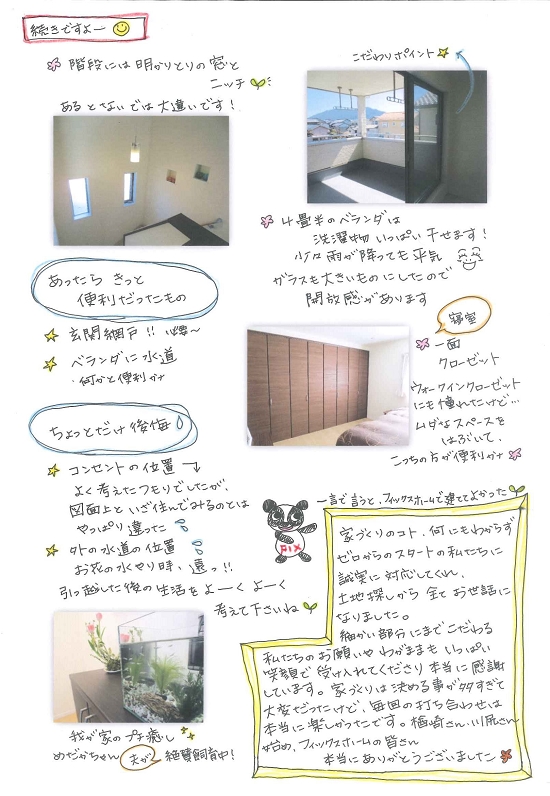 続きですよー
階段には明かりとりの窓と
ニッチ
あるとないでは大違いです！
こだわりポイント
4畳半のベランダは
洗濯物いっぱい干せます！
少々雨が降っても平気
ガラスも大きいものにしたので
開放感があります
あったら きっと
便利だったもの
玄関網戸！！
ベランダに水道
何かと便利かナ
寝室
一面
クローゼット
ウォークインクローゼット
にも憧れたけど…
ムダなスペースを
はぶいて、
こっちの方が便利かナ
ちょっとだけ後悔
コンセントの位置
よく考えたつもりでしたが、
図面上といざ住んでみるのとは
やっぱり違った
外の水道の位置
お花の水やり時、遠っ！！
引っ越した後の生活をよーく よーく
考えて下さいね
一言で言うと、フィックスホームで建ててよかった
PIX
家づくりのコト、何にもわからず
ゼロからのスタートの私たちに
誠実に対応してくれ、
土地探しから 全てお世話に
なりました。
細かい部分にまでこだわる
私たちのお願いやわがままもいっぱい
笑顔で受け入れてくださり本当に感謝
しています。家づくりは決める事が多すぎて
大変だったけど、毎回の打ち合わせは
本当に楽しかったです。楢崎さん、川尻さん
始め、フィックスホームの皆さん
本当にありがとうございました
我が家のプチ癒し
めだかちゃん 夫が 絶賛飼育中！